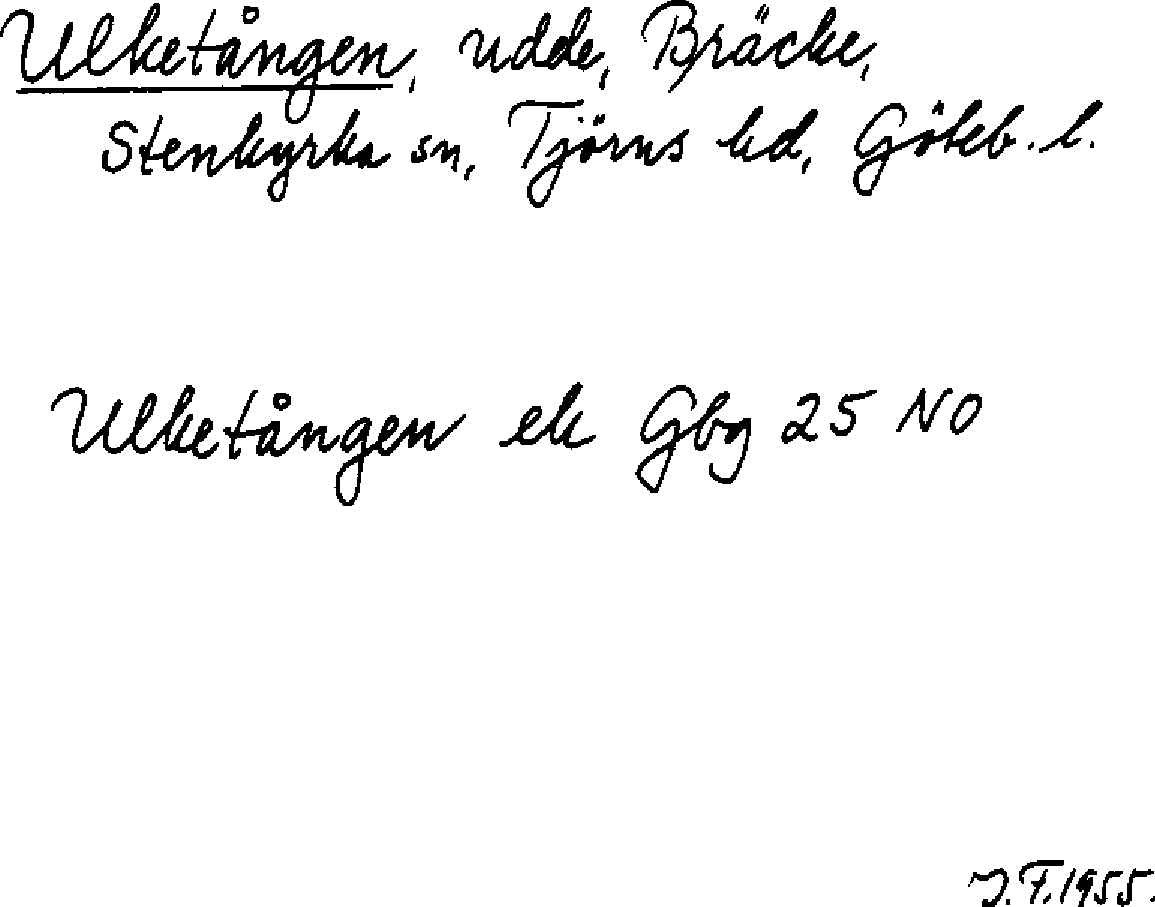 Ulketången, udde, Bräcke,
Stenkyrka sn, Tjörns hd, Göteb. l.
Ulketången ek Gbg 25 NO
J. F. 1955.